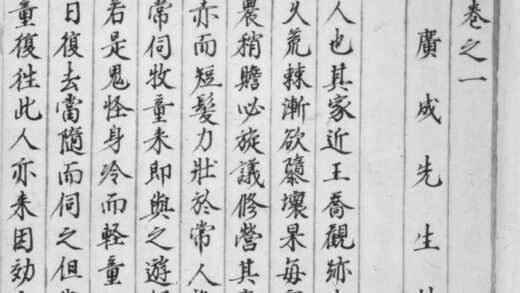 卷之一
廣成先生
人也其家近王喬觀跡
久荒棘漸欲隳壞果每
農稍贍必旋議修營其
赤而短髮力壯於常人
常伺牧童來即與之遊
若是鬼怪身冷而軽童
日復去當隨而伺之但
童復徃此人亦来因効